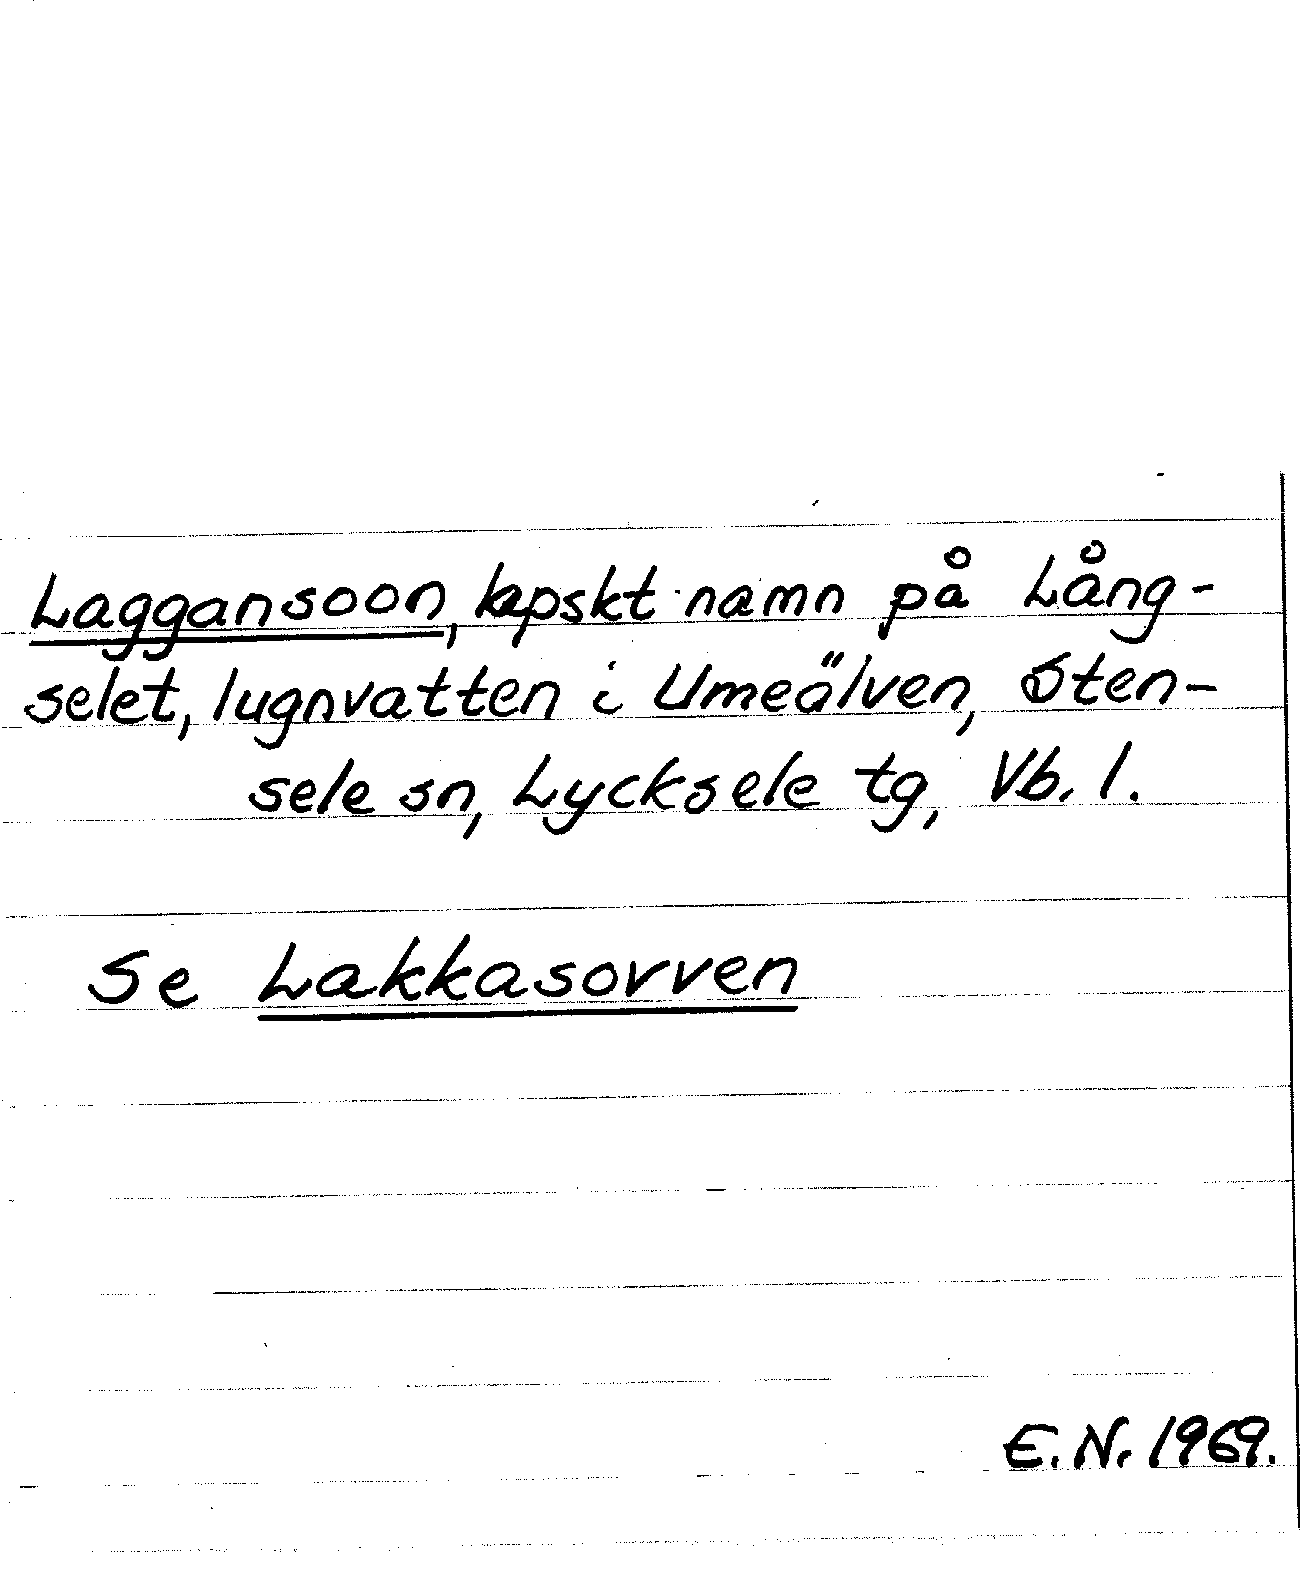 Laggansoon, lapskt namn på Lång-
selet, lugnvatten i Umeälven, Sten-
sele sn, Lycksele tg, Vb. l.
Se Lakkasovven
E.N. 1969.